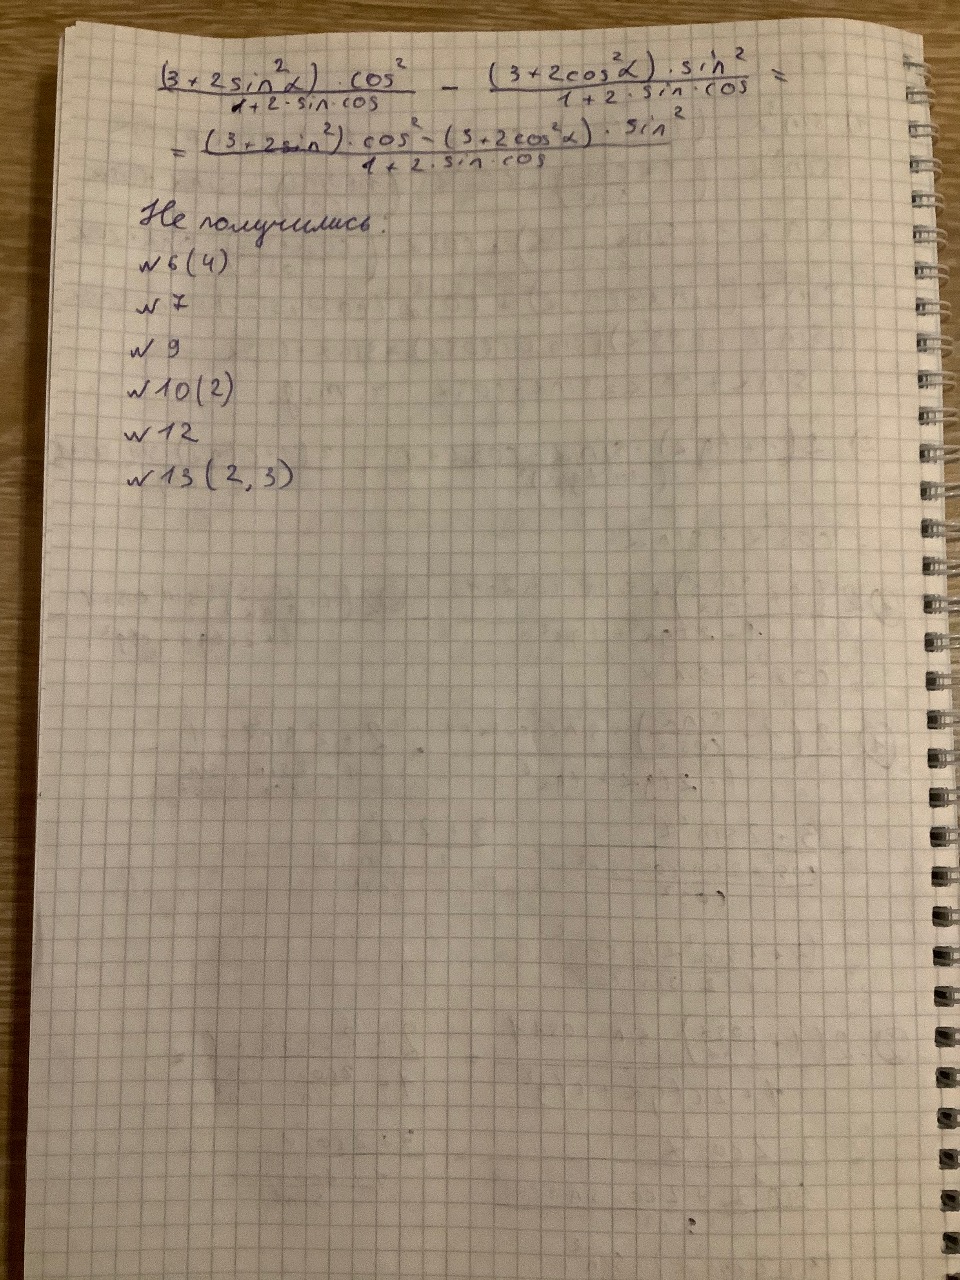 (3+2sin²α)·cos² / 1+2·sin·cos − (3+2cos²α)·sin² / 1+2·sin·cos =
= (3+2sin²)·cos²−(3+2cos²α)·sin² / 1+2·sin·cos
Не получились:
№6(4)
№7
№9
№10(2)
№12
№13(2,3)